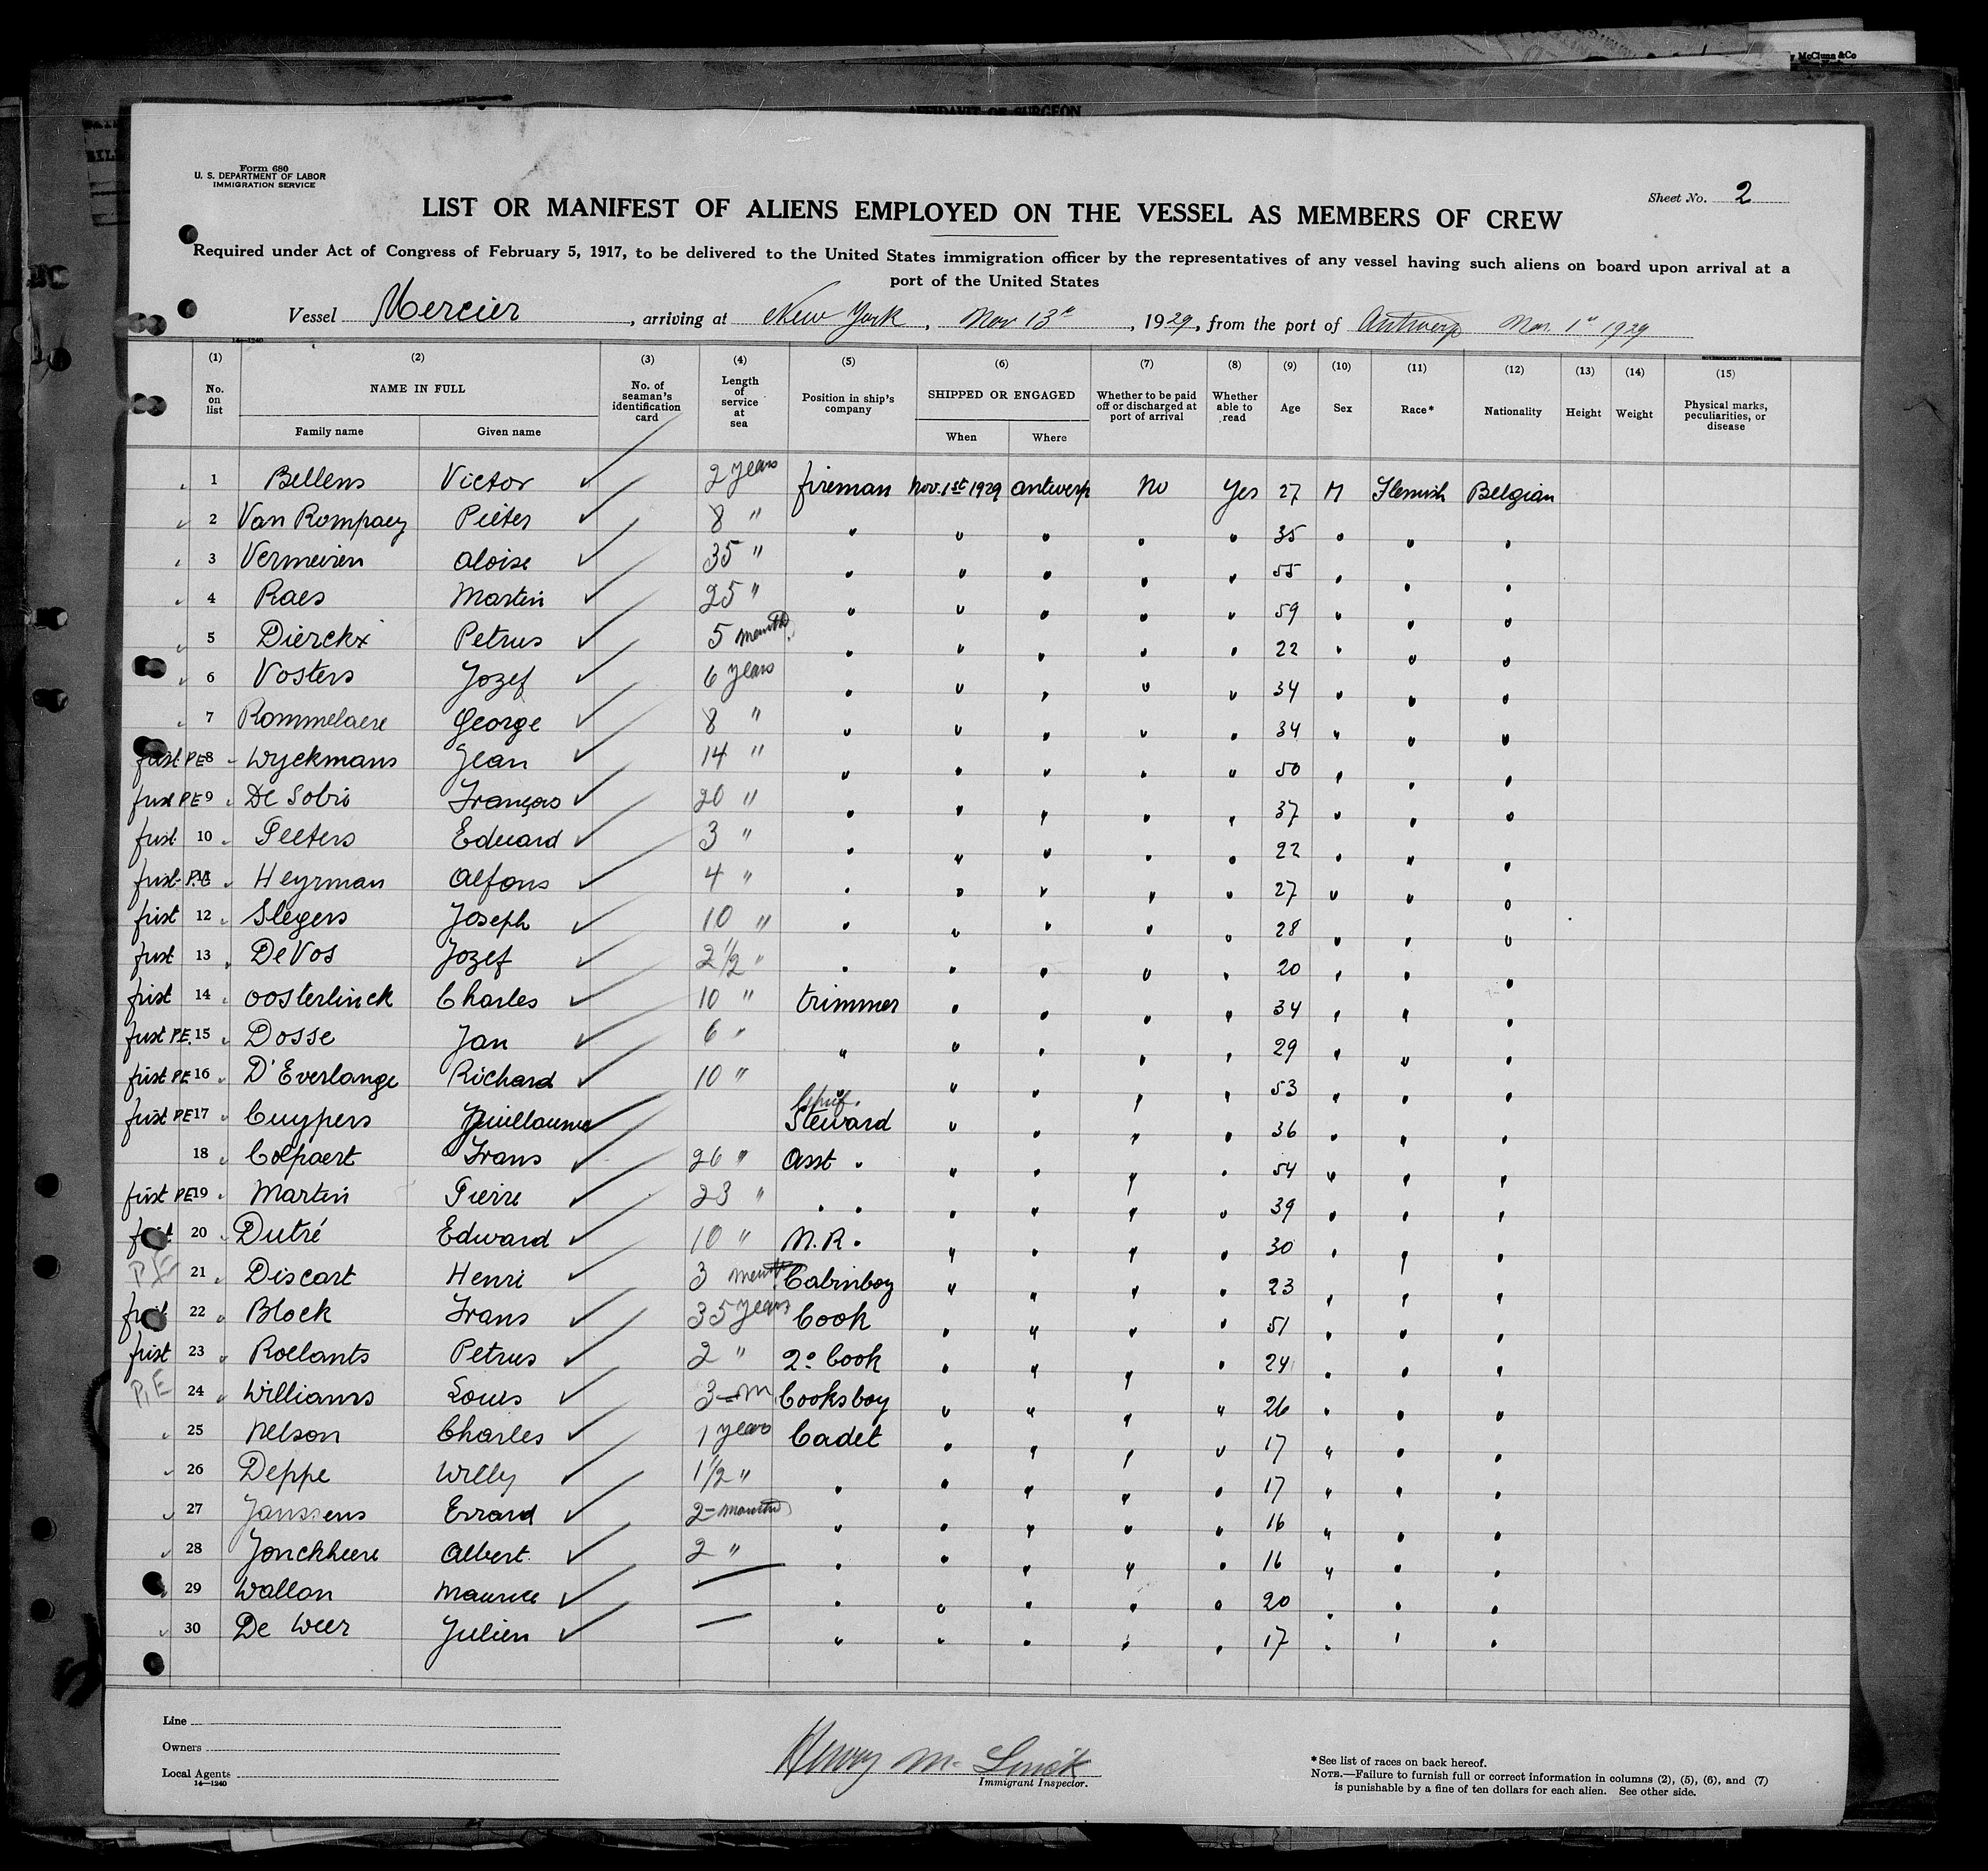 McClung & Co
AFFIDAVIT OF SURGEON
Form 680
U. S. DEPARTMENT OF LABOR
IMMIGRATION SERVICE
Sheet No. 2
LIST OR MANIFEST OF ALIENS EMPLOYED ON THE VESSEL AS MEMBERS OF CREW
Required under Act of Congress of February 5, 1917, to be delivered to the United States immigration officer by the representatives of any vessel having such aliens on board upon arrival at a
port of the United States
Vessel Mercier, arriving at New York, Nov 13th, 1929, from the port of Antwerp Nov. 1st 1929
14—1240 GOVERNMENT PRINTING OFFICE
(1) (2) (3) (4) (5) (6) (7) (8) (9) (10) (11) (12) (13) (14) (15)
No. on list NAME IN FULL No. of seaman's identification card Length of service at sea Position in ship's company SHIPPED OR ENGAGED Whether to be paid off or discharged at port of arrival Whether able to read Age Sex Race* Nationality Height Weight Physical marks, peculiarities, or disease
Family name Given name When Where
1 Bellens Victor ✓ 2 years fireman Nov. 1st 1929 Antwerp No Yes 27 M Flemish Belgian
2 Van Rompaey Pieter ✓ 8 " " " " " " 35 " " "
3 Vermeiren Aloise ✓ 35 " " " " " " 55 " " "
4 Raes Martin ✓ 25 " " " " " " 59 " " "
5 Dierckx Petrus ✓ 5 months " " " " " 22 " " "
6 Vosters Jozef ✓ 6 years " " " " " 34 " " "
7 Rommelaere George ✓ 8 " " " " " " 34 " " "
first PE 8 Wyckmans Jean ✓ 14 " " " " " " 50 " " "
first PE 9 De Sobri François ✓ 20 " " " " " " 37 " " "
first 10 Peeters Eduard ✓ 3 " " " " " " 22 " " "
first P.E. Heyrman Alfons ✓ 4 " " " " " " 27 " " "
first 12 Slegers Joseph ✓ 10 " " " " " " 28 " " "
first 13 De Vos Jozef ✓ 2 1/2 " " " " " " 20 " " "
first 14 Oosterlinck Charles ✓ 10 " trimmer " " " " 34 " " "
first PE. 15 Dosse Jan ✓ 6 " " " " " " 29 " " "
first PE 16 D'Everlange Richard ✓ 10 " " " " " " 53 " " "
first PE 17 Cuypers Guillaume ✓ Chief Steward " " " " 36 " " "
18 Colpaert Frans ✓ 26 " Asst " " " " " 54 " " "
first PE 19 Martin Pierre ✓ 23 " " " " " " " 39 " " "
first 20 Dutré Edward ✓ 10 " M.R. " " " " 30 " " "
PE 21 Discart Henri ✓ 3 months Cabinboy " " " " 23 " " "
first 22 Block Frans ✓ 35 years Cook " " " " 51 " " "
first 23 Roelants Petrus ✓ 2 " 2º Cook " " " " 24 " " "
P.E 24 Williams Louis ✓ 3 – m Cooksboy " " " " 26 " " "
25 Nelson Charles ✓ 1 years Cadet " " " " 17 " " "
26 Deppe Willy ✓ 1 1/2 " " " " " " 17 " " "
27 Janssens Errard ✓ 2 – months " " " " " 16 " " "
28 Jonckheere Albert ✓ 2 " " " " " " 16 " " "
29 Wallon Maurice ✓ — " " " " " 20 " " "
30 De Weer Julien ✓ — " " " " " 17 " " "
Line
Owners
Local Agents
14—1240
Henry M.
Immigrant Inspector.
*See list of races on back hereof.
NOTE.—Failure to furnish full or correct information in columns (2), (5), (6), and (7)
is punishable by a fine of ten dollars for each alien. See other side.